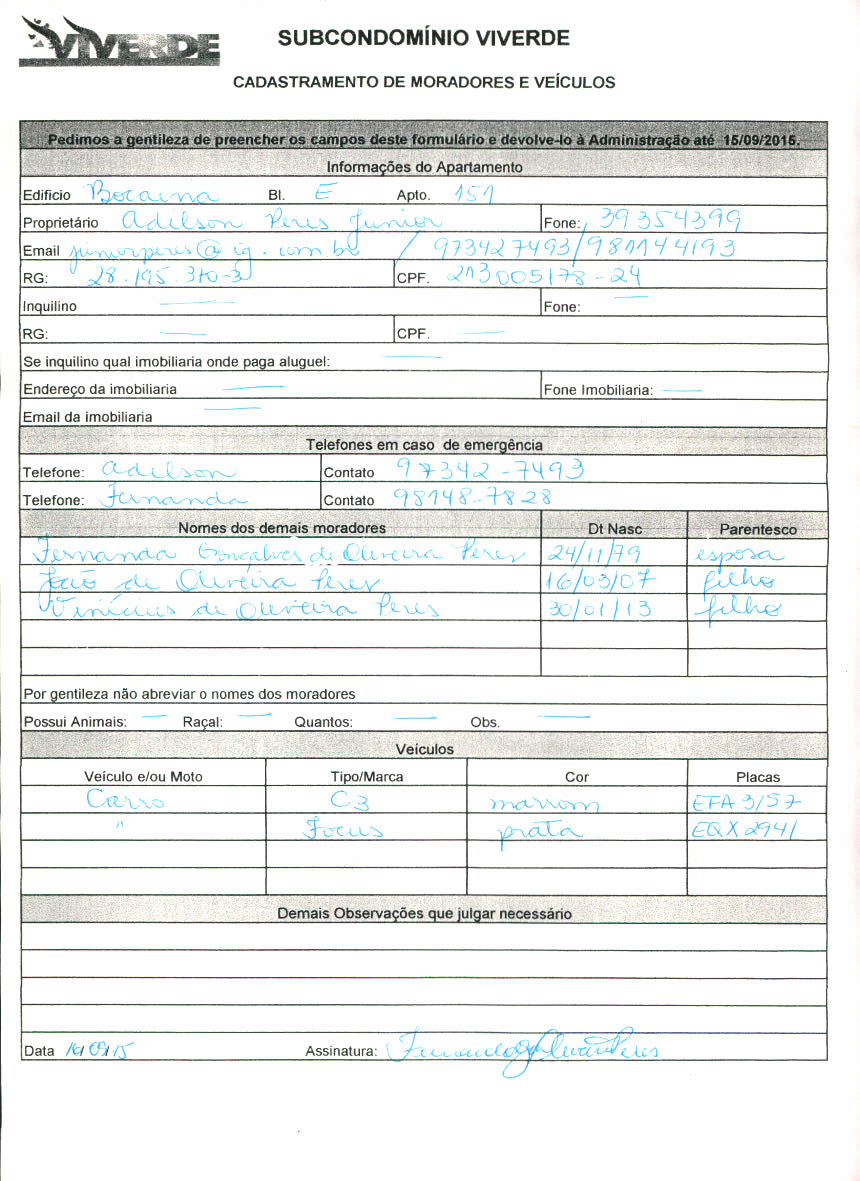 VIVERDE
SUBCONDOMÍNIO VIVERDE
CADASTRAMENTO DE MORADORES E VEÍCULOS
Pedimos a gentileza de preencher os campos deste formulário e devolve-lo à Administração até 15/09/2015.
Informações do Apartamento
Edificio Bocaina Bl. E Apto. 151
Proprietário Adilson Peres Junior Fone: 39354399
Email juniorperes@ig.com.br / 973427493/981144193
RG: 28.195.370-3 CPF. 213005178-24
Inquilino Fone:
RG: CPF.
Se inquilino qual imobiliaria onde paga aluguel:
Endereço da imobiliaria Fone Imobiliaria:
Email da imobiliaria
Telefones em caso de emergência
Telefone: Adilson Contato 97342-7493
Telefone: Fernanda Contato 98148-7828
Nomes dos demais moradores Dt Nasc Parentesco
Fernanda Gonçalves de Oliveira Peres 24/11/79 esposa
João de Oliveira Peres 16/03/07 filho
Vinícius de Oliveira Peres 30/01/13 filho
Por gentileza não abreviar o nomes dos moradores
Possui Animais: Raçal: Quantos: Obs.
Veículos
Veículo e/ou Moto Tipo/Marca Cor Placas
Carro C3 marrom EFA 3157
" Focus prata EQX 2941
Demais Observações que julgar necessário
Data 10/09/15 Assinatura: Fernanda G Oliveira Peres